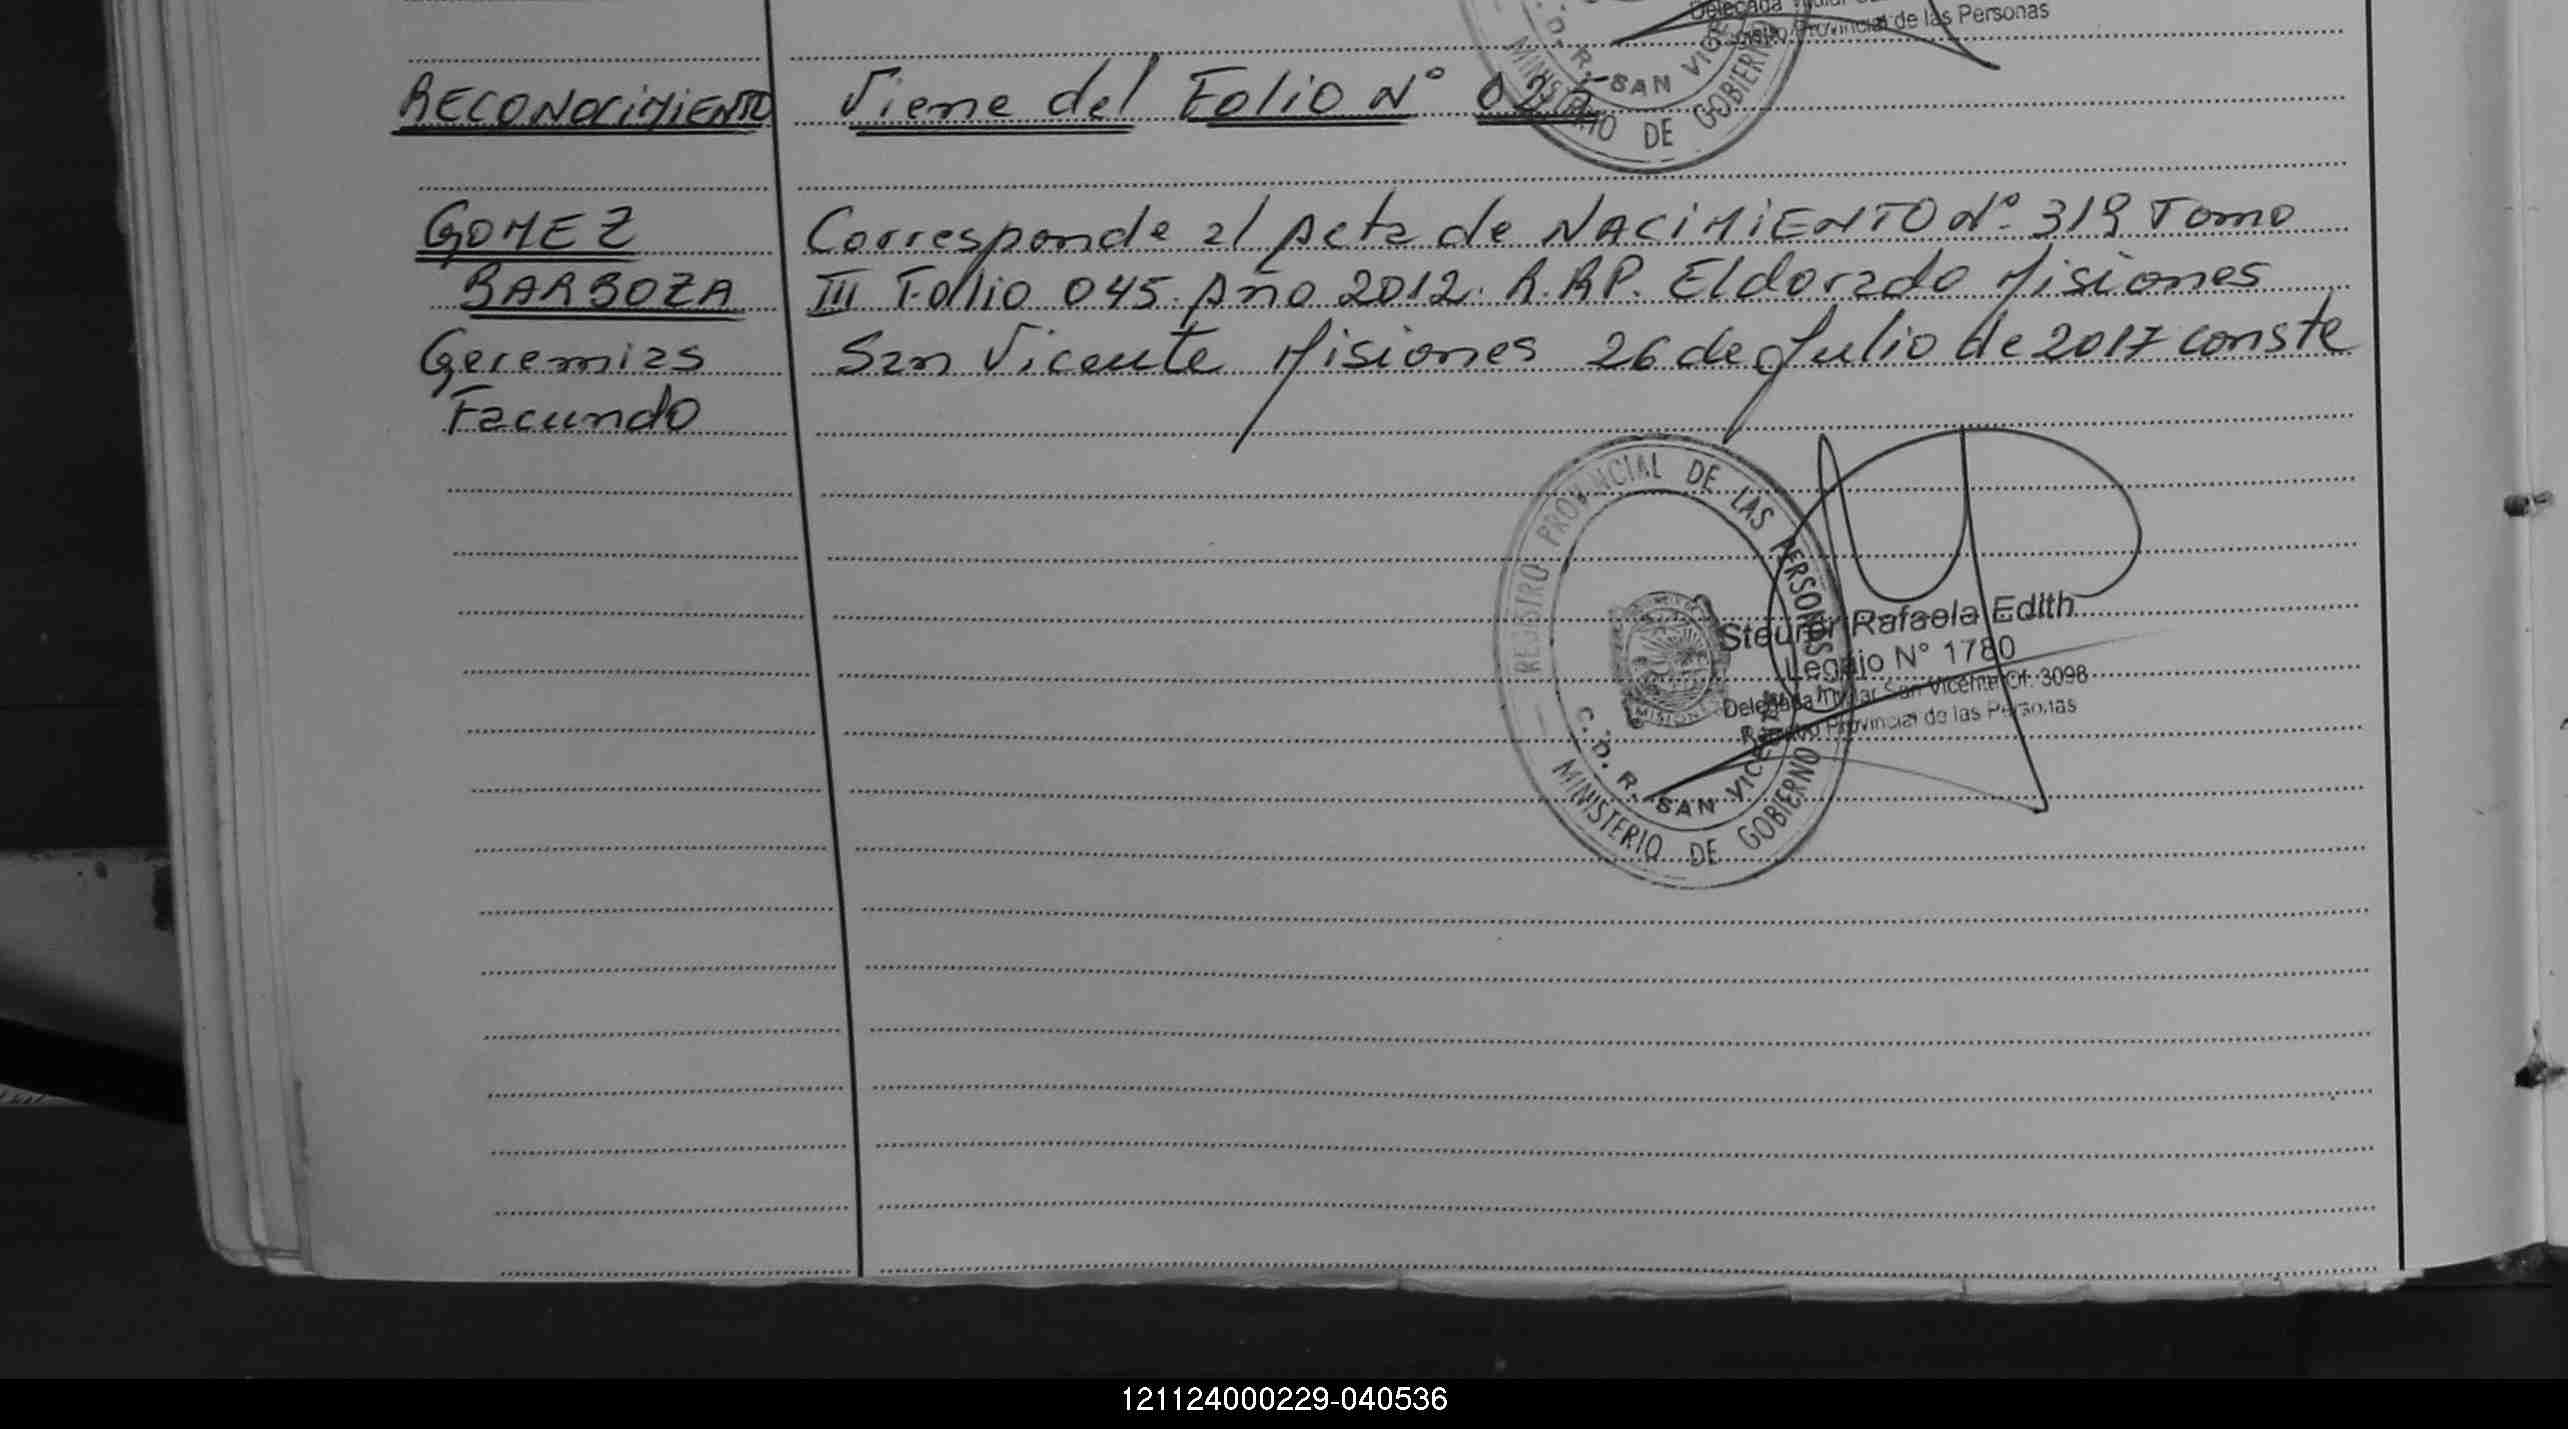 Delegada Titular
Registro Provincial de las Personas
C. D. R. SAN VICENTE
MINISTERIO DE GOBIERNO
RECONOCIMIENTO Viene del Folio N° 02
GOMEZ Corresponde al Acta de NACIMIENTO N°. 319 Tomo
BARBOZA III Folio 045. Año 2012. R.R.P. Eldorado Misiones
Geremias San Vicente Misiones 26 de Julio de 2017 conste
Facundo
REGISTRO PROVINCIAL DE LAS PERSONAS
MISIONES
C. D. R. SAN VICENTE
MINISTERIO DE GOBIERNO
Steurer Rafaela Edith
Legajo N° 1780
Delegada Titular San Vicente Of. 3098
Registro Provincial de las Personas
121124000229-040536